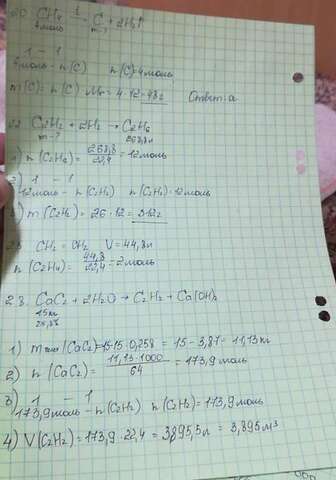 20. CH₄ →t C + 2H₂↑
4моль m-?
1 - 1
4моль - n(C) n(C)=4моль
m(C)= n(C)·Mr= 4·12=48г Ответ: а
22. C₂H₂ + 2H₂ → C₂H₆
m-? 268,8л
1) n(C₂H₆) = 268,8/22,4 = 12моль
2) 1 - 1
12моль - n(C₂H₂) n(C₂H₂)=12моль
3) m(C₂H₂) = 26·12 = 312г
CH₂=CH₂ V=44,8л
n(C₂H₄) = 44,8/22,4 = 2моль
23. CaC₂ + 2H₂O → C₂H₂ + Ca(OH)₂
15кг
25,8%
1) (CaC₂)=15-15·0,258 = 15 - 3,87 = 11,13кг
2) n(CaC₂) = 11,13·1000/64 = 173,9моль
3) 1 - 1
173,9моль - n(C₂H₂) n(C₂H₂)=173,9моль
4) V(C₂H₂) = 173,9·22,4 = 3895,5л = 3,895м³